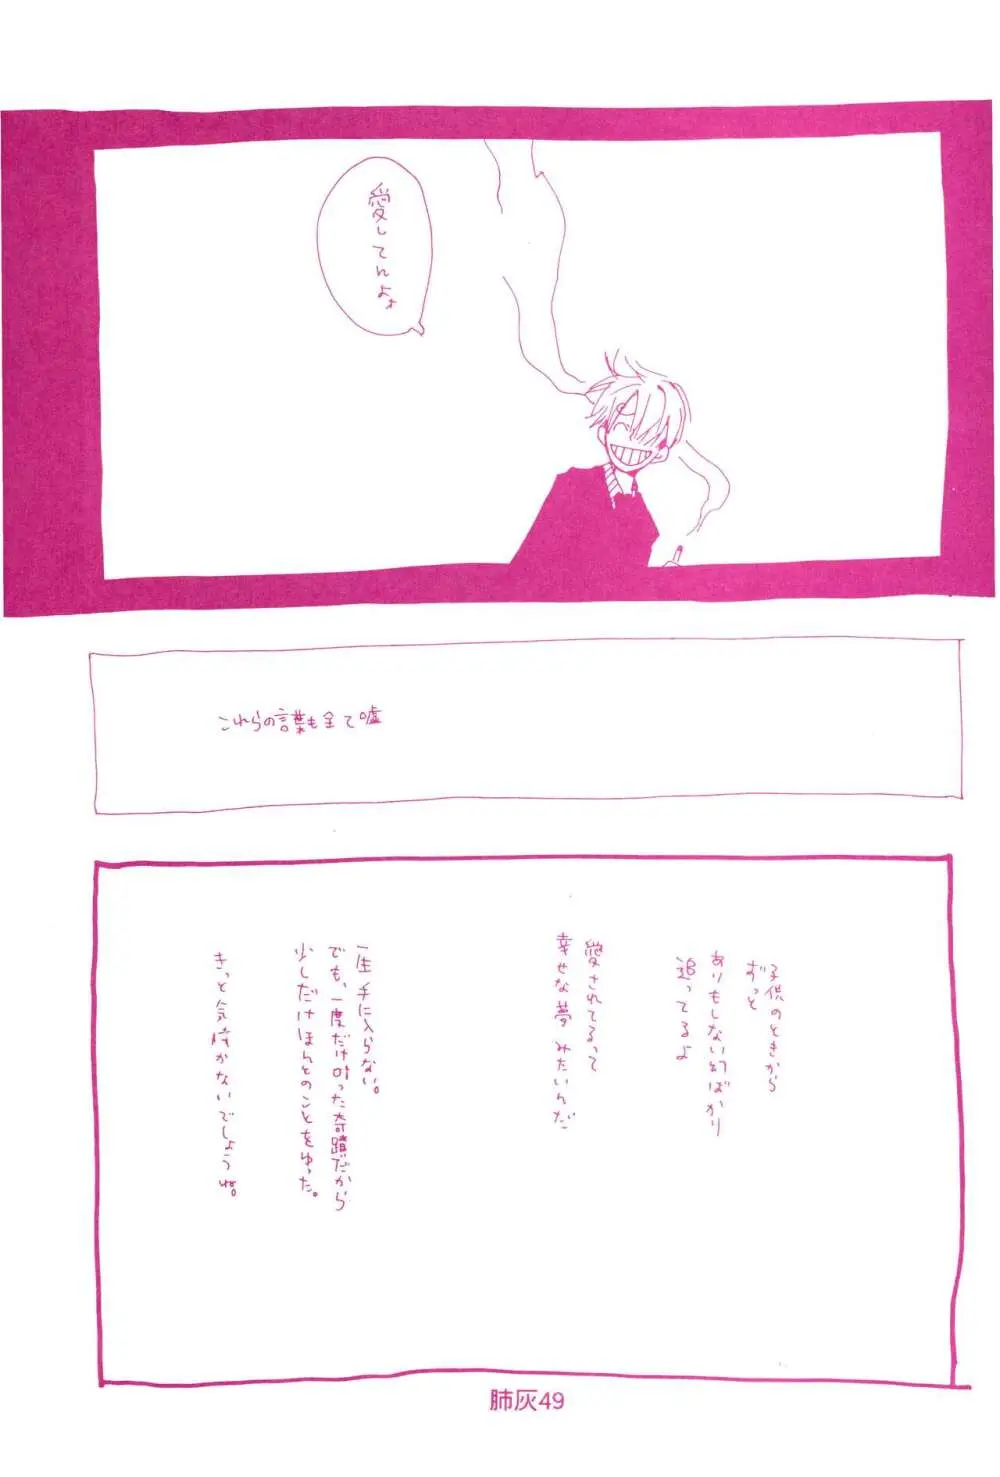 愛してんよ
これらの言葉も全て嘘
子供のときから
ずっと
ありもしない幻ばかり
追ってるよ
愛されてるって
幸せな夢みたいんだ
一生手に入らない。
でも、一度だけ叶った奇蹟だから
少しだけほんとのことをゆった。
きっと気付かないでしょうね。
肺灰49